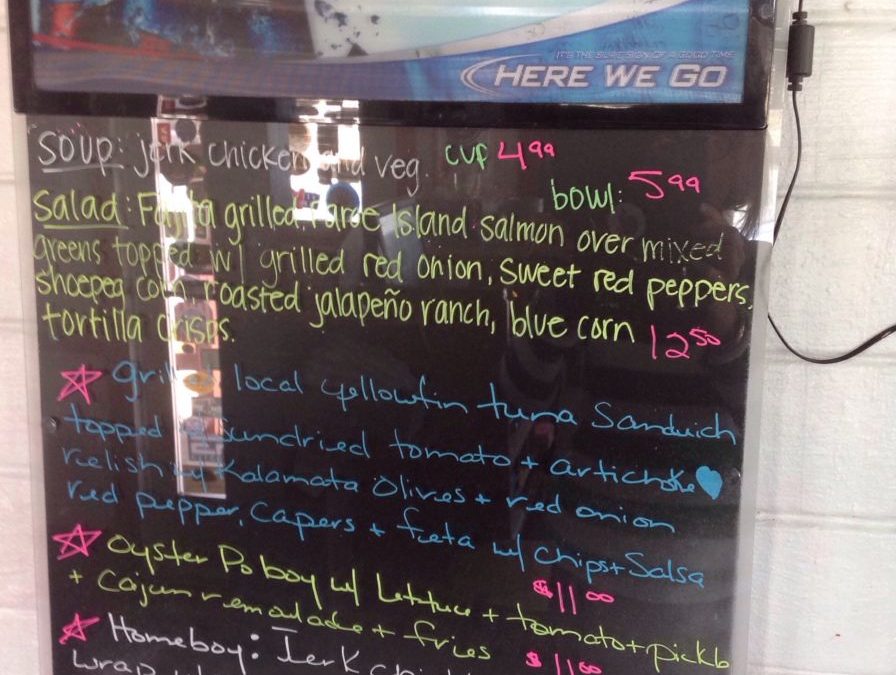 IT'S THE SURE SIGN OF A GOOD TIME
HERE WE GO
SOUP: jerk chicken and veg. cup 4⁹⁹
bowl: 5⁹⁹
Salad: Fajita grilled Faroe Island salmon over mixed
greens topped w/ grilled red onion, sweet red peppers,
shoepeg corn, roasted jalapeño ranch, blue corn
tortilla crisps. 12⁵⁰
grilled local yellowfin tuna Sandwich
topped w/ Sundried tomato + artichoke
relish w/ Kalamata Olives + red onion
red pepper, capers + feta w/ chips + Salsa
$11⁰⁰
Oyster Po boy w/ Lettuce + tomato + pickle
+ Cajun remoulade + fries $11⁰⁰
Homeboy: Jerk
wrap